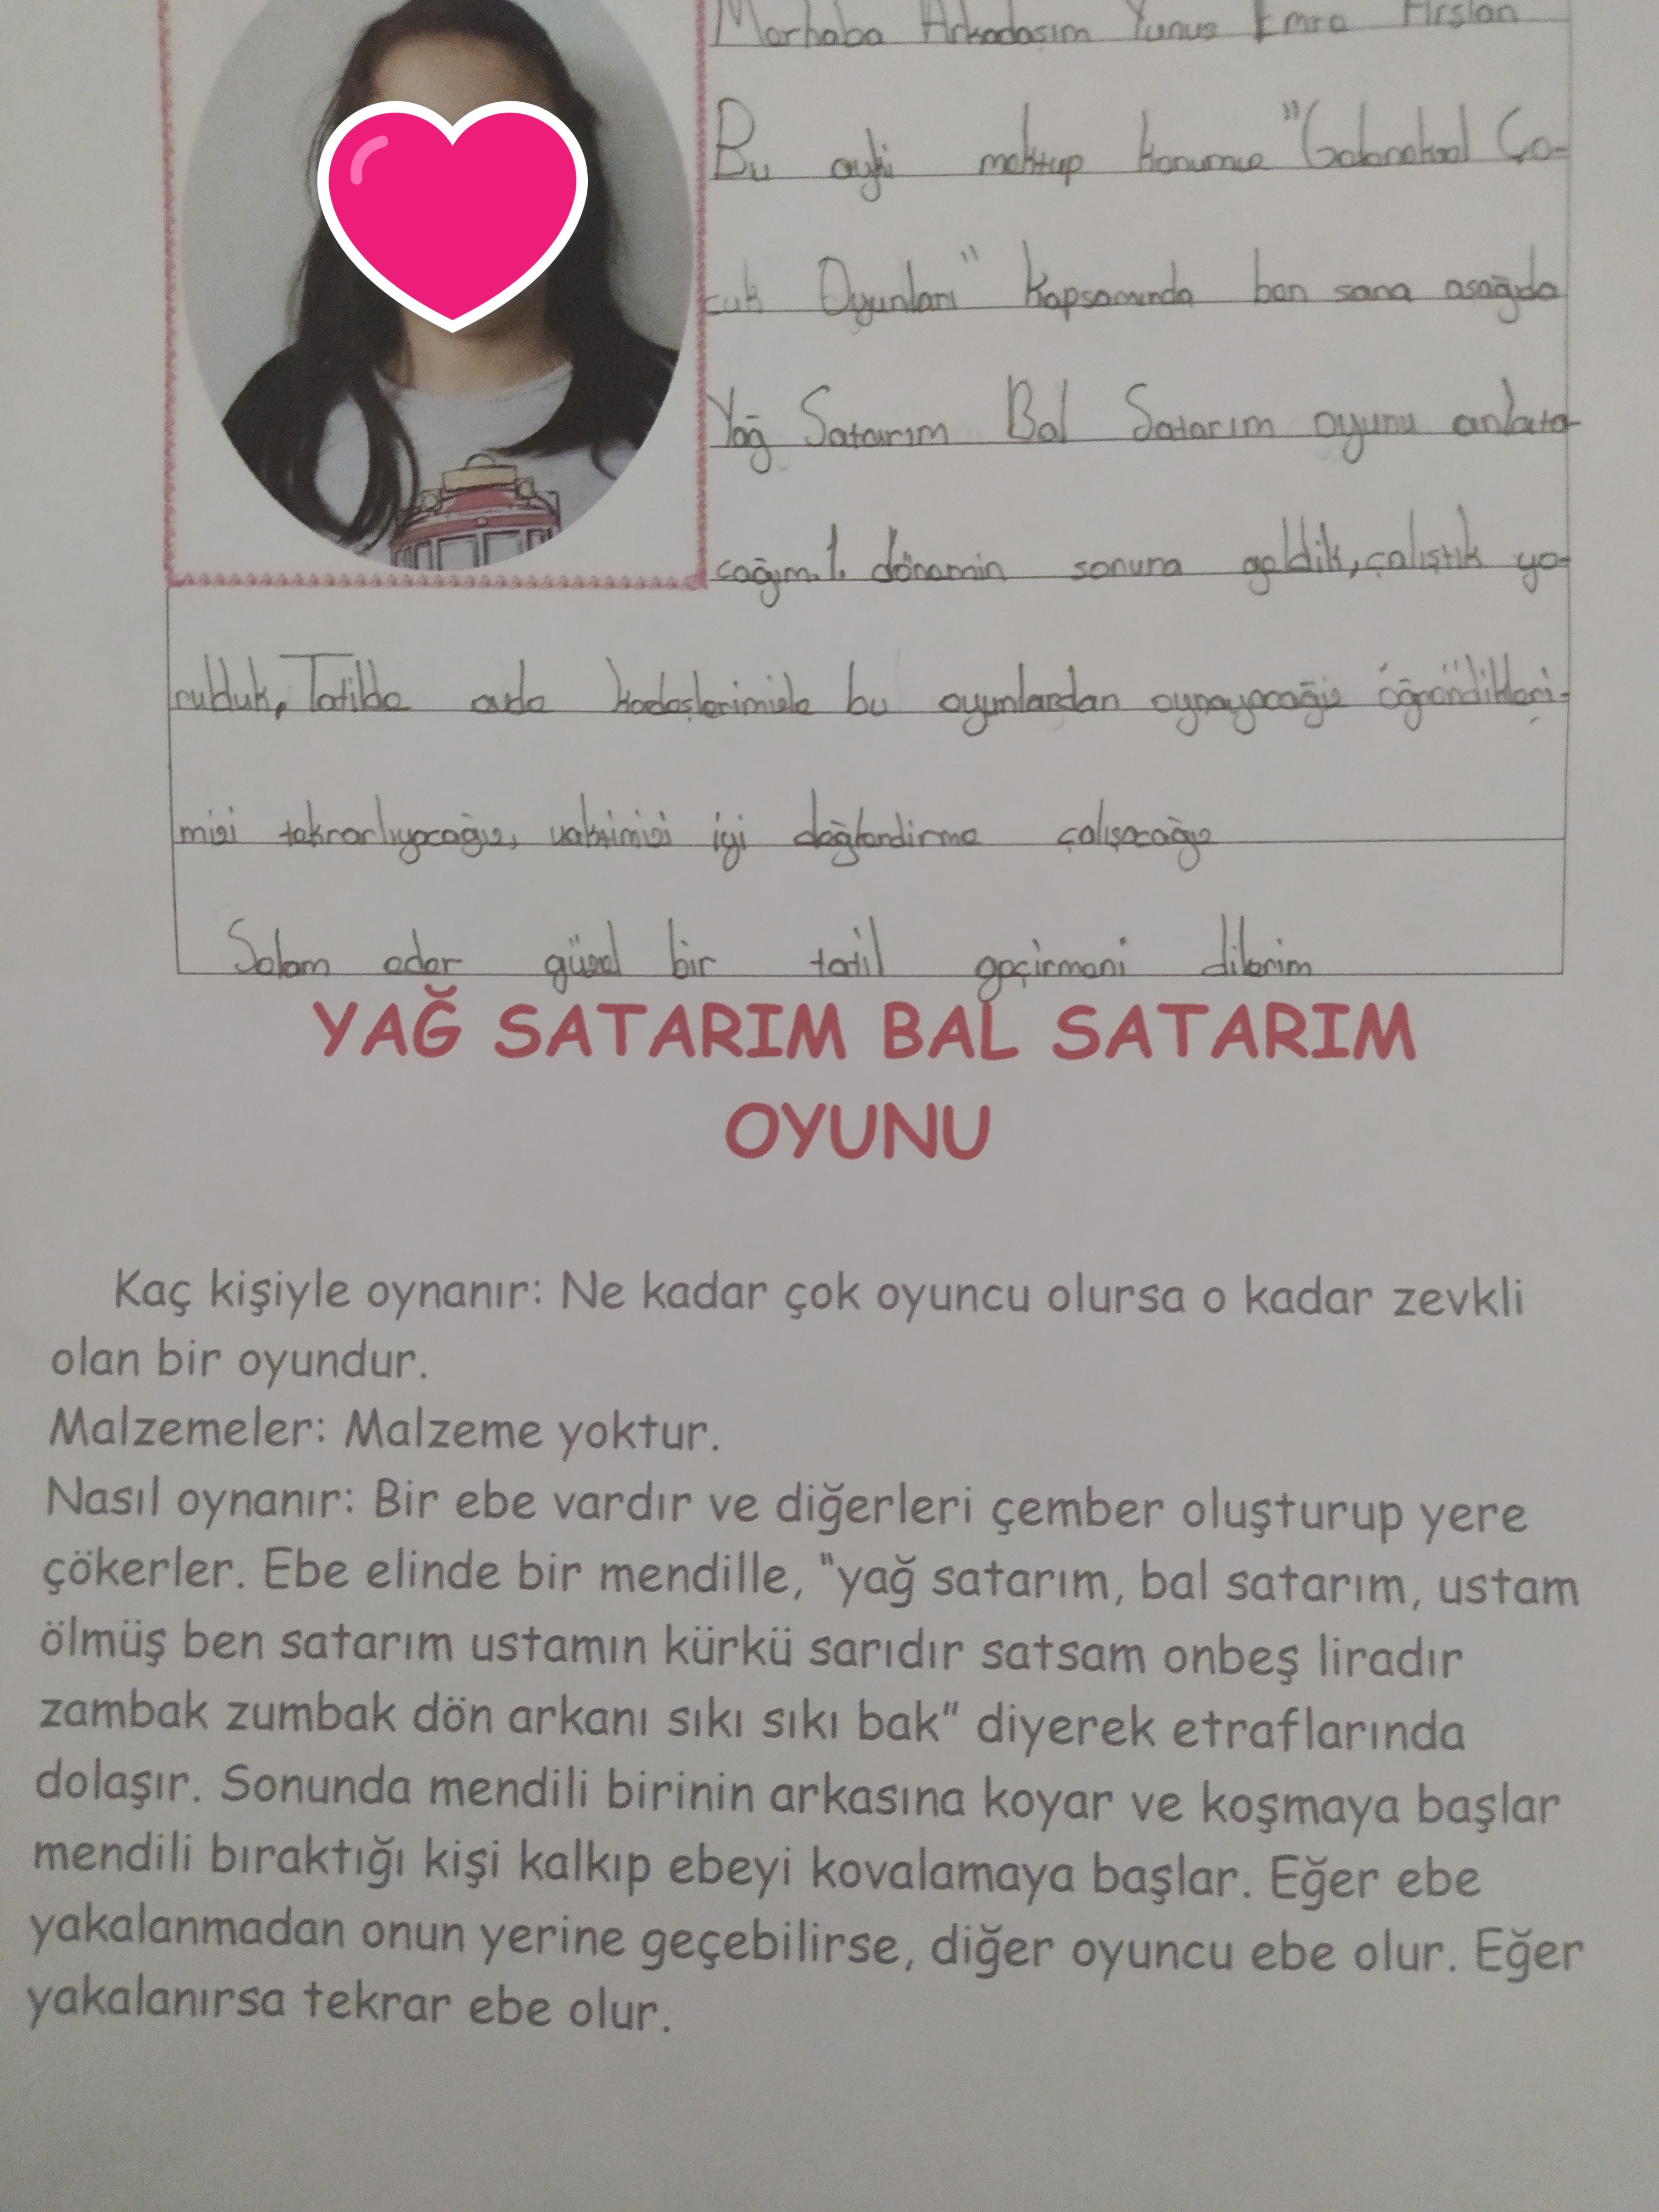 Merhaba Arkadaşım Yunus Emre Arslan
Bu ayki mektup konumuz "Geleneksel Ço-
cuk Oyunları" kapsamında ben sana aşağıda
Yağ Satarım Bal Satarım oyunu anlata-
cağım. 1. dönemin sonuna geldik, çalıştık yo-
rulduk, Tatilde evde kardeşlerimizle bu oyunlardan oynayacağız öğrendikleri-
mizi tekrarlıyacağız, vaktimizi iyi değlendirme çalışacağız
Selam eder güzel bir tatil geçirmeni dilerim
YAĞ SATARIM BAL SATARIM
OYUNU
Kaç kişiyle oynanır: Ne kadar çok oyuncu olursa o kadar zevkli
olan bir oyundur.
Malzemeler: Malzeme yoktur.
Nasıl oynanır: Bir ebe vardır ve diğerleri çember oluşturup yere
çökerler. Ebe elinde bir mendille, "yağ satarım, bal satarım, ustam
ölmüş ben satarım ustamın kürkü sarıdır satsam onbeş liradır
zambak zumbak dön arkanı sıkı sıkı bak" diyerek etraflarında
dolaşır. Sonunda mendili birinin arkasına koyar ve koşmaya başlar
mendili bıraktığı kişi kalkıp ebeyi kovalamaya başlar. Eğer ebe
yakalanmadan onun yerine geçebilirse, diğer oyuncu ebe olur. Eğer
yakalanırsa tekrar ebe olur.